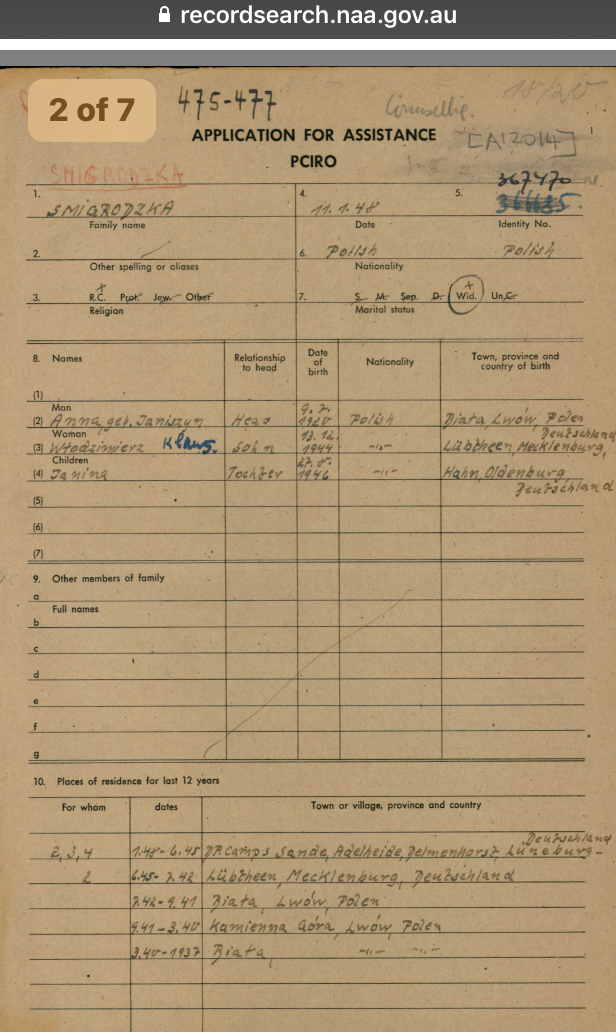 recordsearch.naa.gov.au
2 of 7
475-477
18/20
[A12014]
APPLICATION FOR ASSISTANCE
PCIRO
SMIGRODZKA
367470
1. SMIGRODZKA
Family name
4. 11.1.48
Date
5.
Identity No.
2.
Other spelling or aliases
6. Polish Polish
Nationality
3. R.C. Prot. Jew. Other
Religion
7. S. M. Sep. D. Wid. Un.C.
Marital status
8. Names Relationship to head Date of birth Nationality Town, province and country of birth
(1)
Man
(2) Anna geb. Janiszyn Head 9.7. 1920 Polish Biata, Lwów, Polen
Woman
(3) Włodzimierz Klaus. Sohn 13.12. 1944 -"- Lübtheen, Mecklenburg, Deutschland
Children
(4) Janina Tochter 27.8. 1946 -"- Hahn, Oldenburg Deutschland
(5)
(6)
(7)
9. Other members of family
a
Full names
b
c
d
e
f
g
10. Places of residence for last 12 years
For whom dates Town or village, province and country
2, 3, 4 1.48-6.45 DP.Camps Sande, Adelheide, Delmenhorst, Lüneburg- Deutschland
2 6.45-7.42 Lübtheen, Mecklenburg, Deutschland
7.42-9.41 Biata, Lwów, Polen
9.41-3.40 Kamienna Góra, Lwów, Polen
3.40-1937 Biata, -"- -"-